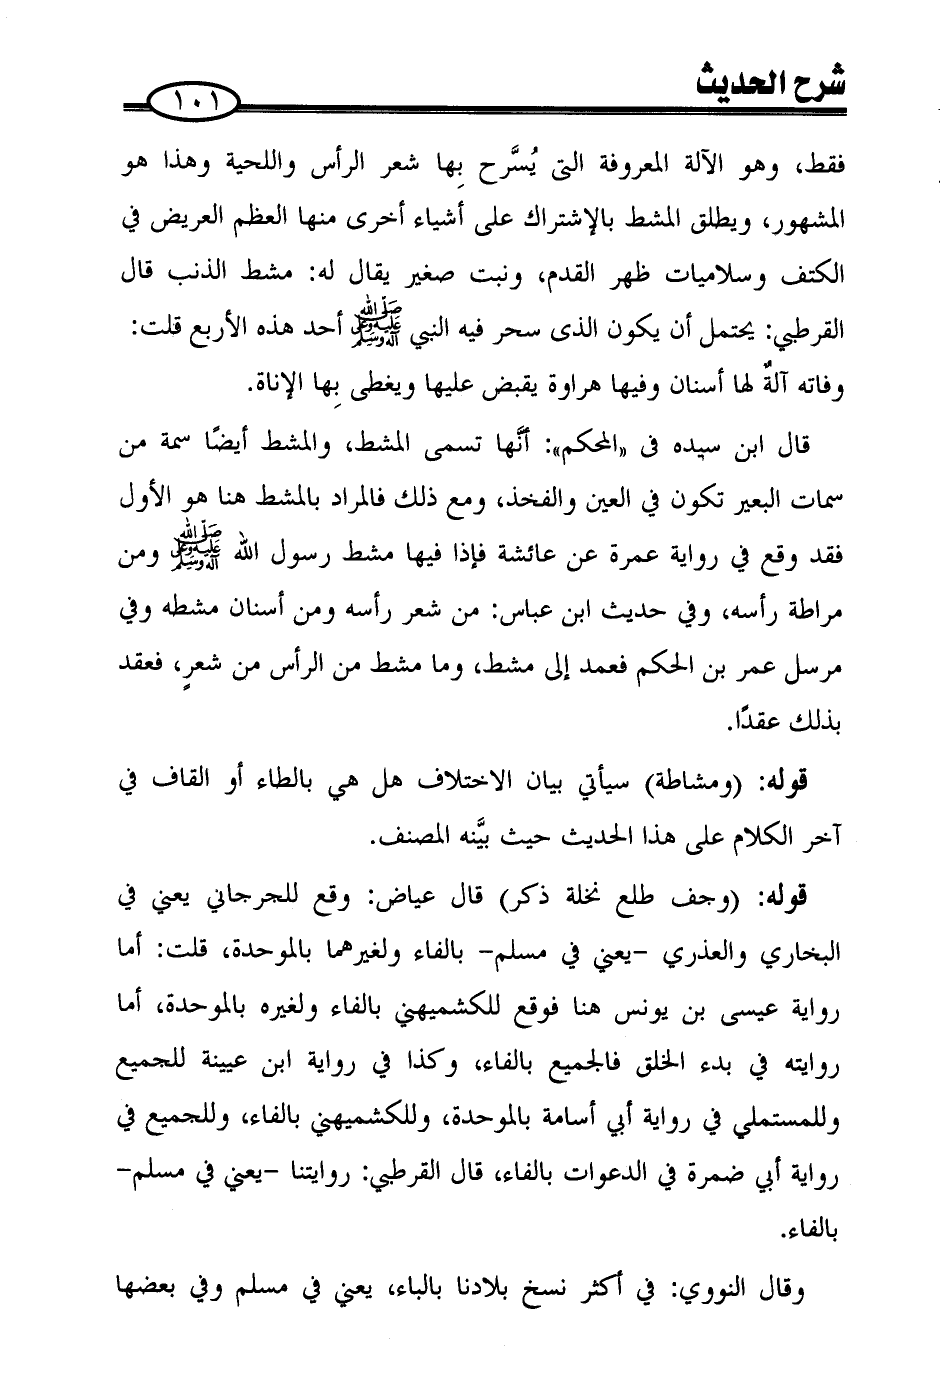 شرح الحديث
١٠١
فقط، وهو الآلة المعروفة التى يُسَّرح بِها شعر الرأس واللحية وهذا هو
المشهور، ويطلق المشط بالإشتراك على أشياء أخرى منها العظم العريض في
الكتف وسلاميات ظهر القدم، ونبت صغير يقال له: مشط الذنب قال
القرطبي: يحتمل أن يكون الذى سحر فيه النبي ﷺ أحد هذه الأربع قلت:
وفاته آلةٌ لها أسنان وفيها هراوة يقبض عليها ويغطى بِها الإناة.
قال ابن سيده فى «المحكم»: أنَّها تسمى المشط، والمشط أيضًا سمة من
سمات البعير تكون في العين والفخذ، ومع ذلك فالمراد بالمشط هنا هو الأول
فقد وقع في رواية عمرة عن عائشة فإذا فيها مشط رسول الله ﷺ ومن
مراطة رأسه، وفي حديث ابن عباس: من شعر رأسه ومن أسنان مشطه وفي
مرسل عمر بن الحكم فعمد إلى مشط، وما مشط من الرأس من شعرٍ، فعقد
بذلك عقدًا.
قوله: (ومشاطة) سيأتي بيان الاختلاف هل هي بالطاء أو القاف في
آخر الكلام على هذا الحديث حيث بيَّنه المصنف.
قوله: (وجف طلع نخلة ذكر) قال عياض: وقع للجرجاني يعني في
البخاري والعذري -يعني في مسلم- بالفاء ولغيرهما بالموحدة، قلت: أما
رواية عيسى بن يونس هنا فوقع للكشميهني بالفاء ولغيره بالموحدة، أما
روايته في بدء الخلق فالجميع بالفاء، وكذا في رواية ابن عيينة للجميع
وللمستملي في رواية أبي أسامة بالموحدة، وللكشميهني بالفاء، وللجميع في
رواية أبي ضمرة في الدعوات بالفاء، قال القرطبي: روايتنا -يعني في مسلم-
بالفاء.
وقال النووي: في أكثر نسخ بلادنا بالباء، يعني في مسلم وفي بعضها